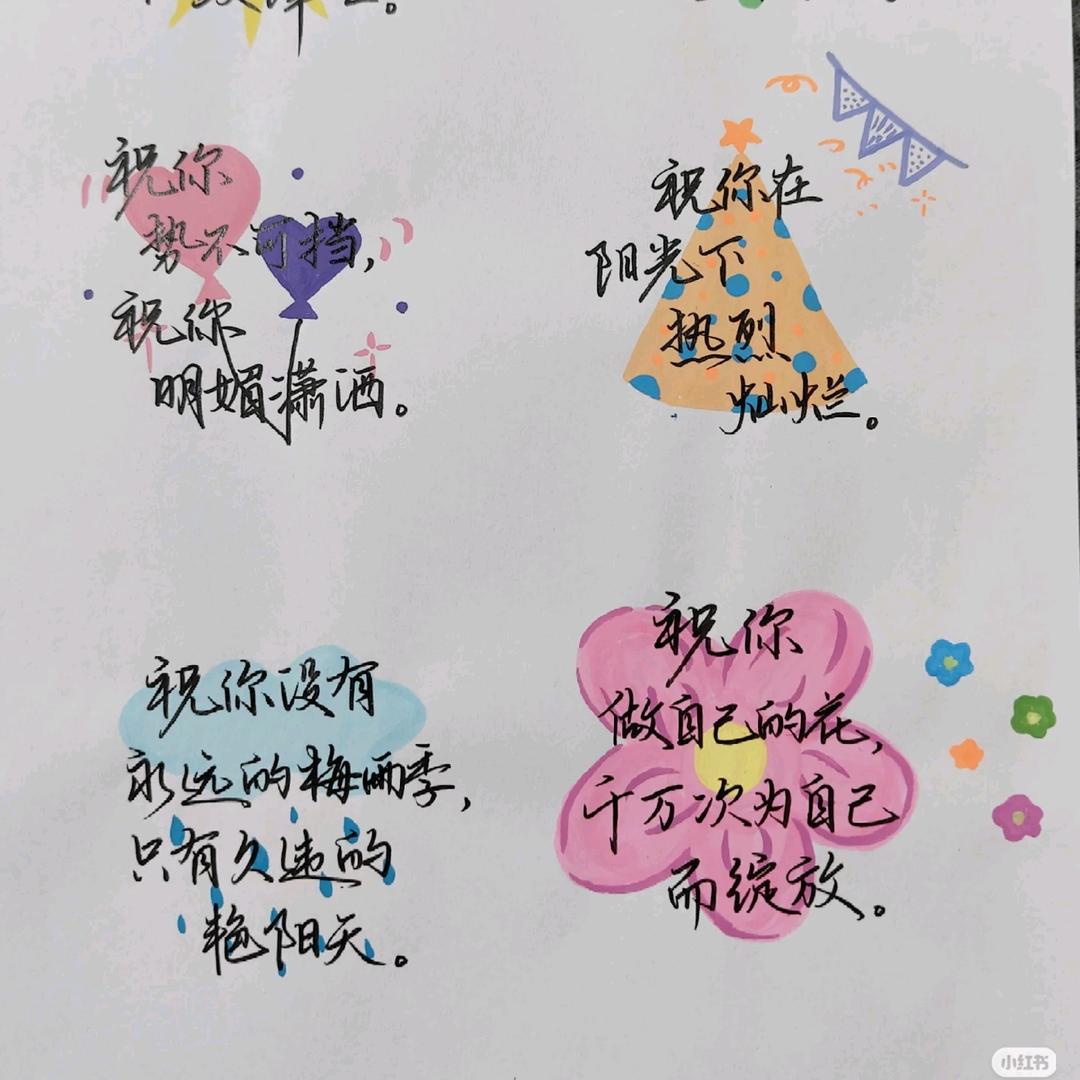 祝你
势不可挡,
祝你
明媚潇洒。
祝你在
阳光下
热烈
灿烂。
祝你没有
永远的梅雨季,
只有久违的
艳阳天。
祝你
做自己的花,
千万次为自己
而绽放。
小红书